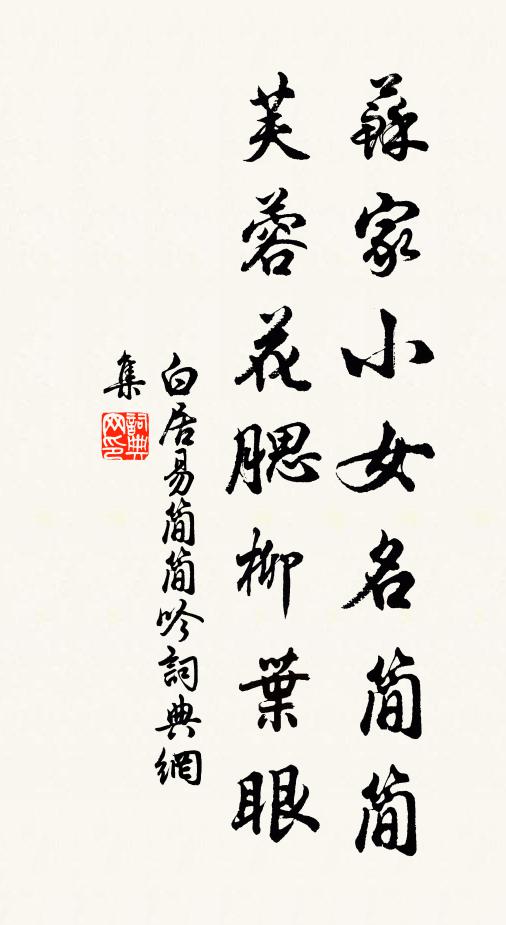 蘇家小女名簡簡
芙蓉花腮柳葉眼
白居易簡簡吟詞典網
集
詞典
网印